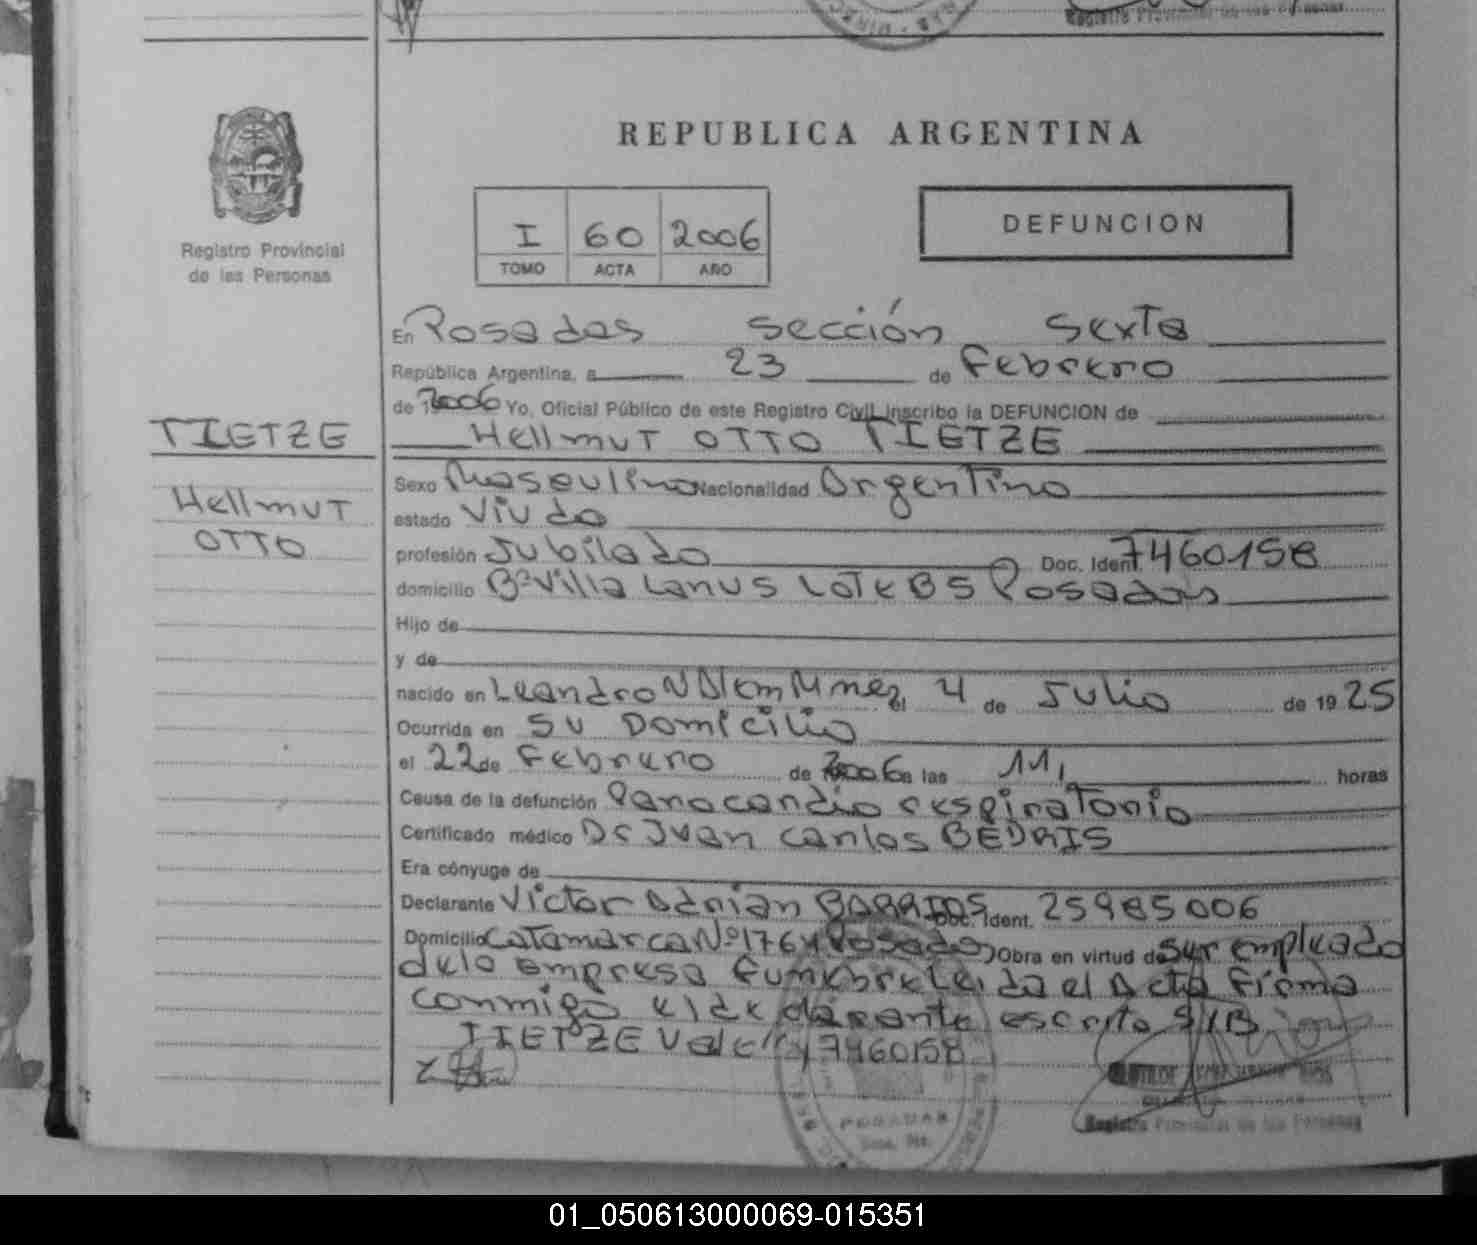 Registro Provincial de las Personas
REPUBLICA ARGENTINA
Registro Provincial
de las Personas
I 60 2006
TOMO ACTA AÑO
DEFUNCION
En Posadas sección sexta
República Argentina, a 23 de Febrero
de 2006 Yo, Oficial Público de este Registro Civil inscribo la DEFUNCION de
TIETZE
Hellmut OTTO TIETZE
Hellmut
OTTO
Sexo Masculino Nacionalidad Argentino
estado Viudo
profesión Jubilado Doc. Ident 7460158
domicilio Bº Villa Lanus Lote 85 Posadas
Hijo de
y de
nacido en Leandro N Alem Mnes el 4 de Julio de 1925
Ocurrida en su Domicilio
el 22 de Febrero de 2006 a las 11, horas
Causa de la defunción Paro cardio respiratorio
Certificado médico Dr Juan Carlos BEDRIS
Era cónyuge de
Declarante Victor Adrian BARRIOS Doc. Ident. 25985006
Domicilio Catamarca Nº 1764 Posadas Obra en virtud de ser empleado
de la empresa funebre Leida el Acta firma
conmigo el declarante escrito S/B
TIETZE Vale 7460158
POSADAS
Registro Provincial de las Personas
01_050613000069-015351